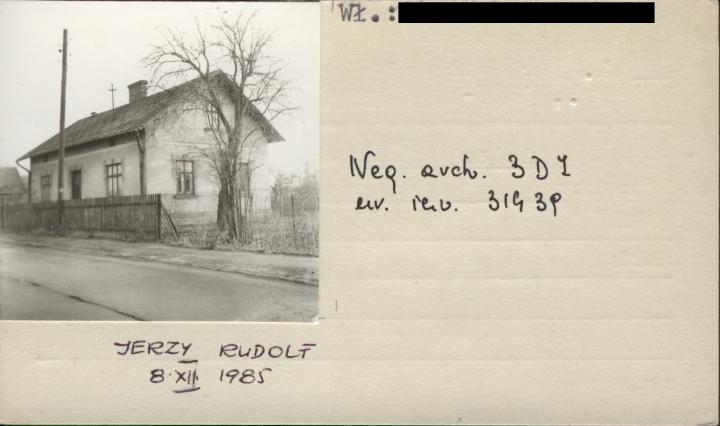 Wł.:
Neg. arch. 3D1
nr. inw. 31439
JERZY RUDOLF
8.XII 1985